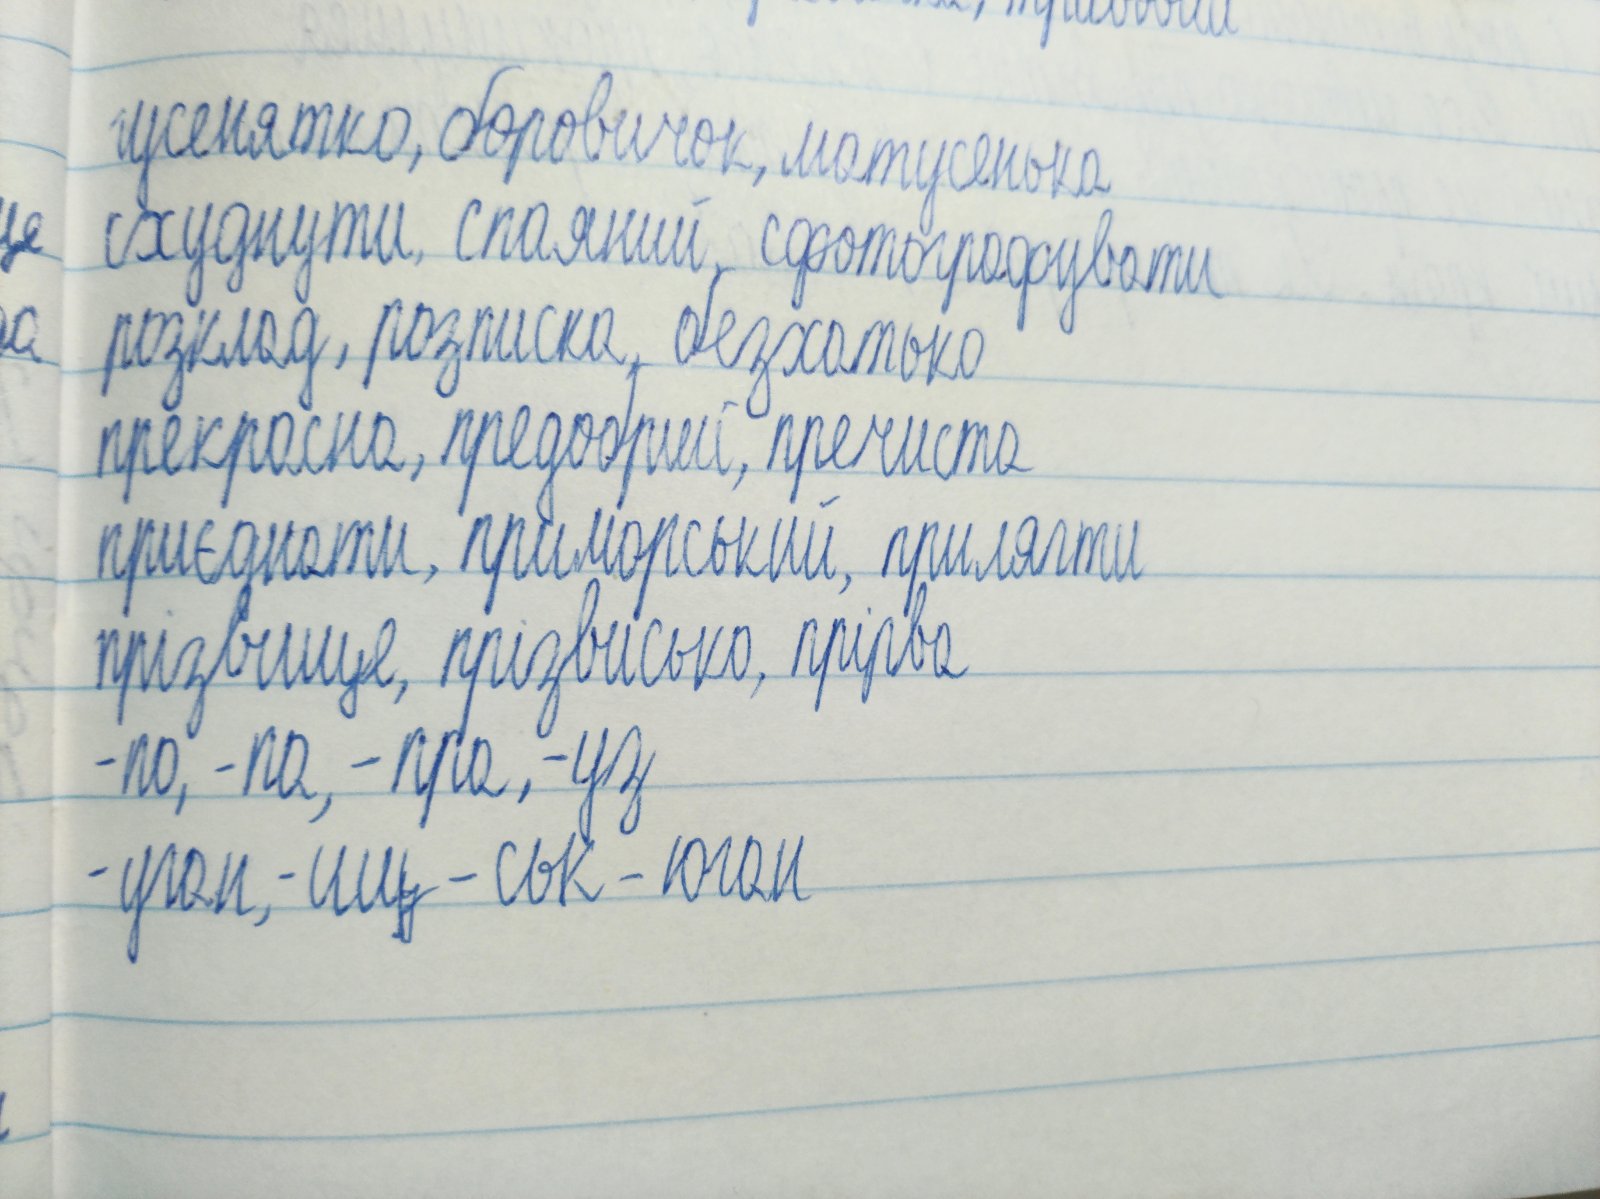 гусенятко, боровичок, матусенька
схуднути, спаяний, сфотографувати
розклад, розписка, безхатько
прекрасна, предобрий, пречиста
приєднати, приморський, прилягти
прізвище, прізвисько, прірва
-по, -па, -пра, -уз
-уган, -ищ, -ськ -юган